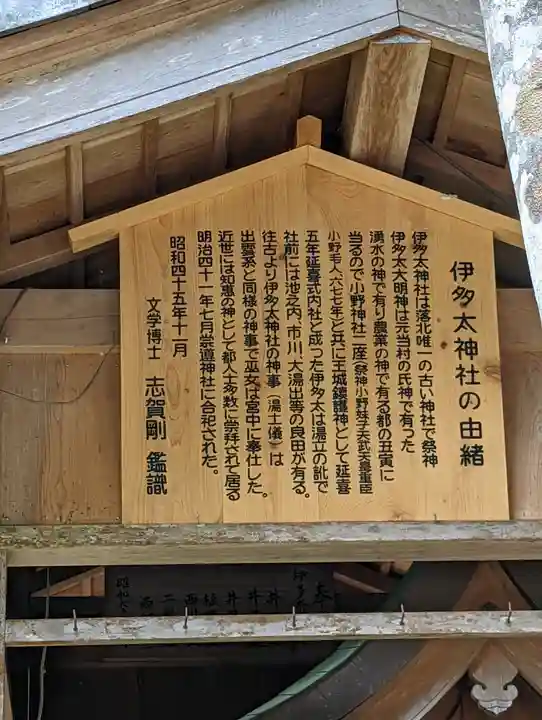 伊多太神社の由緒
伊多太神社は洛北唯一の古い神社で祭神
伊多太大明神は元当村の氏神で有った
湧水の神で有り農業の神で有る都の丑寅に
当るので小野神社二座(祭神小野妹子大武天皇重臣
小野毛人、六七七年)と共に王城鎮護神として延喜
五年延喜式内社と成った伊多太は湯立の訛で
社前には池之内、市川、大湯出等の良田が有る。
往古より伊多太神社の神事(湯土儀)は
出雲系と同様の神事で巫女は宮中に奉仕した。
近世には知恵の神として都人士多数に崇拝されて居る
明治四十一年七月崇道神社に合祀された。
昭和四十五年十一月
文学博士 志賀剛 鑑識